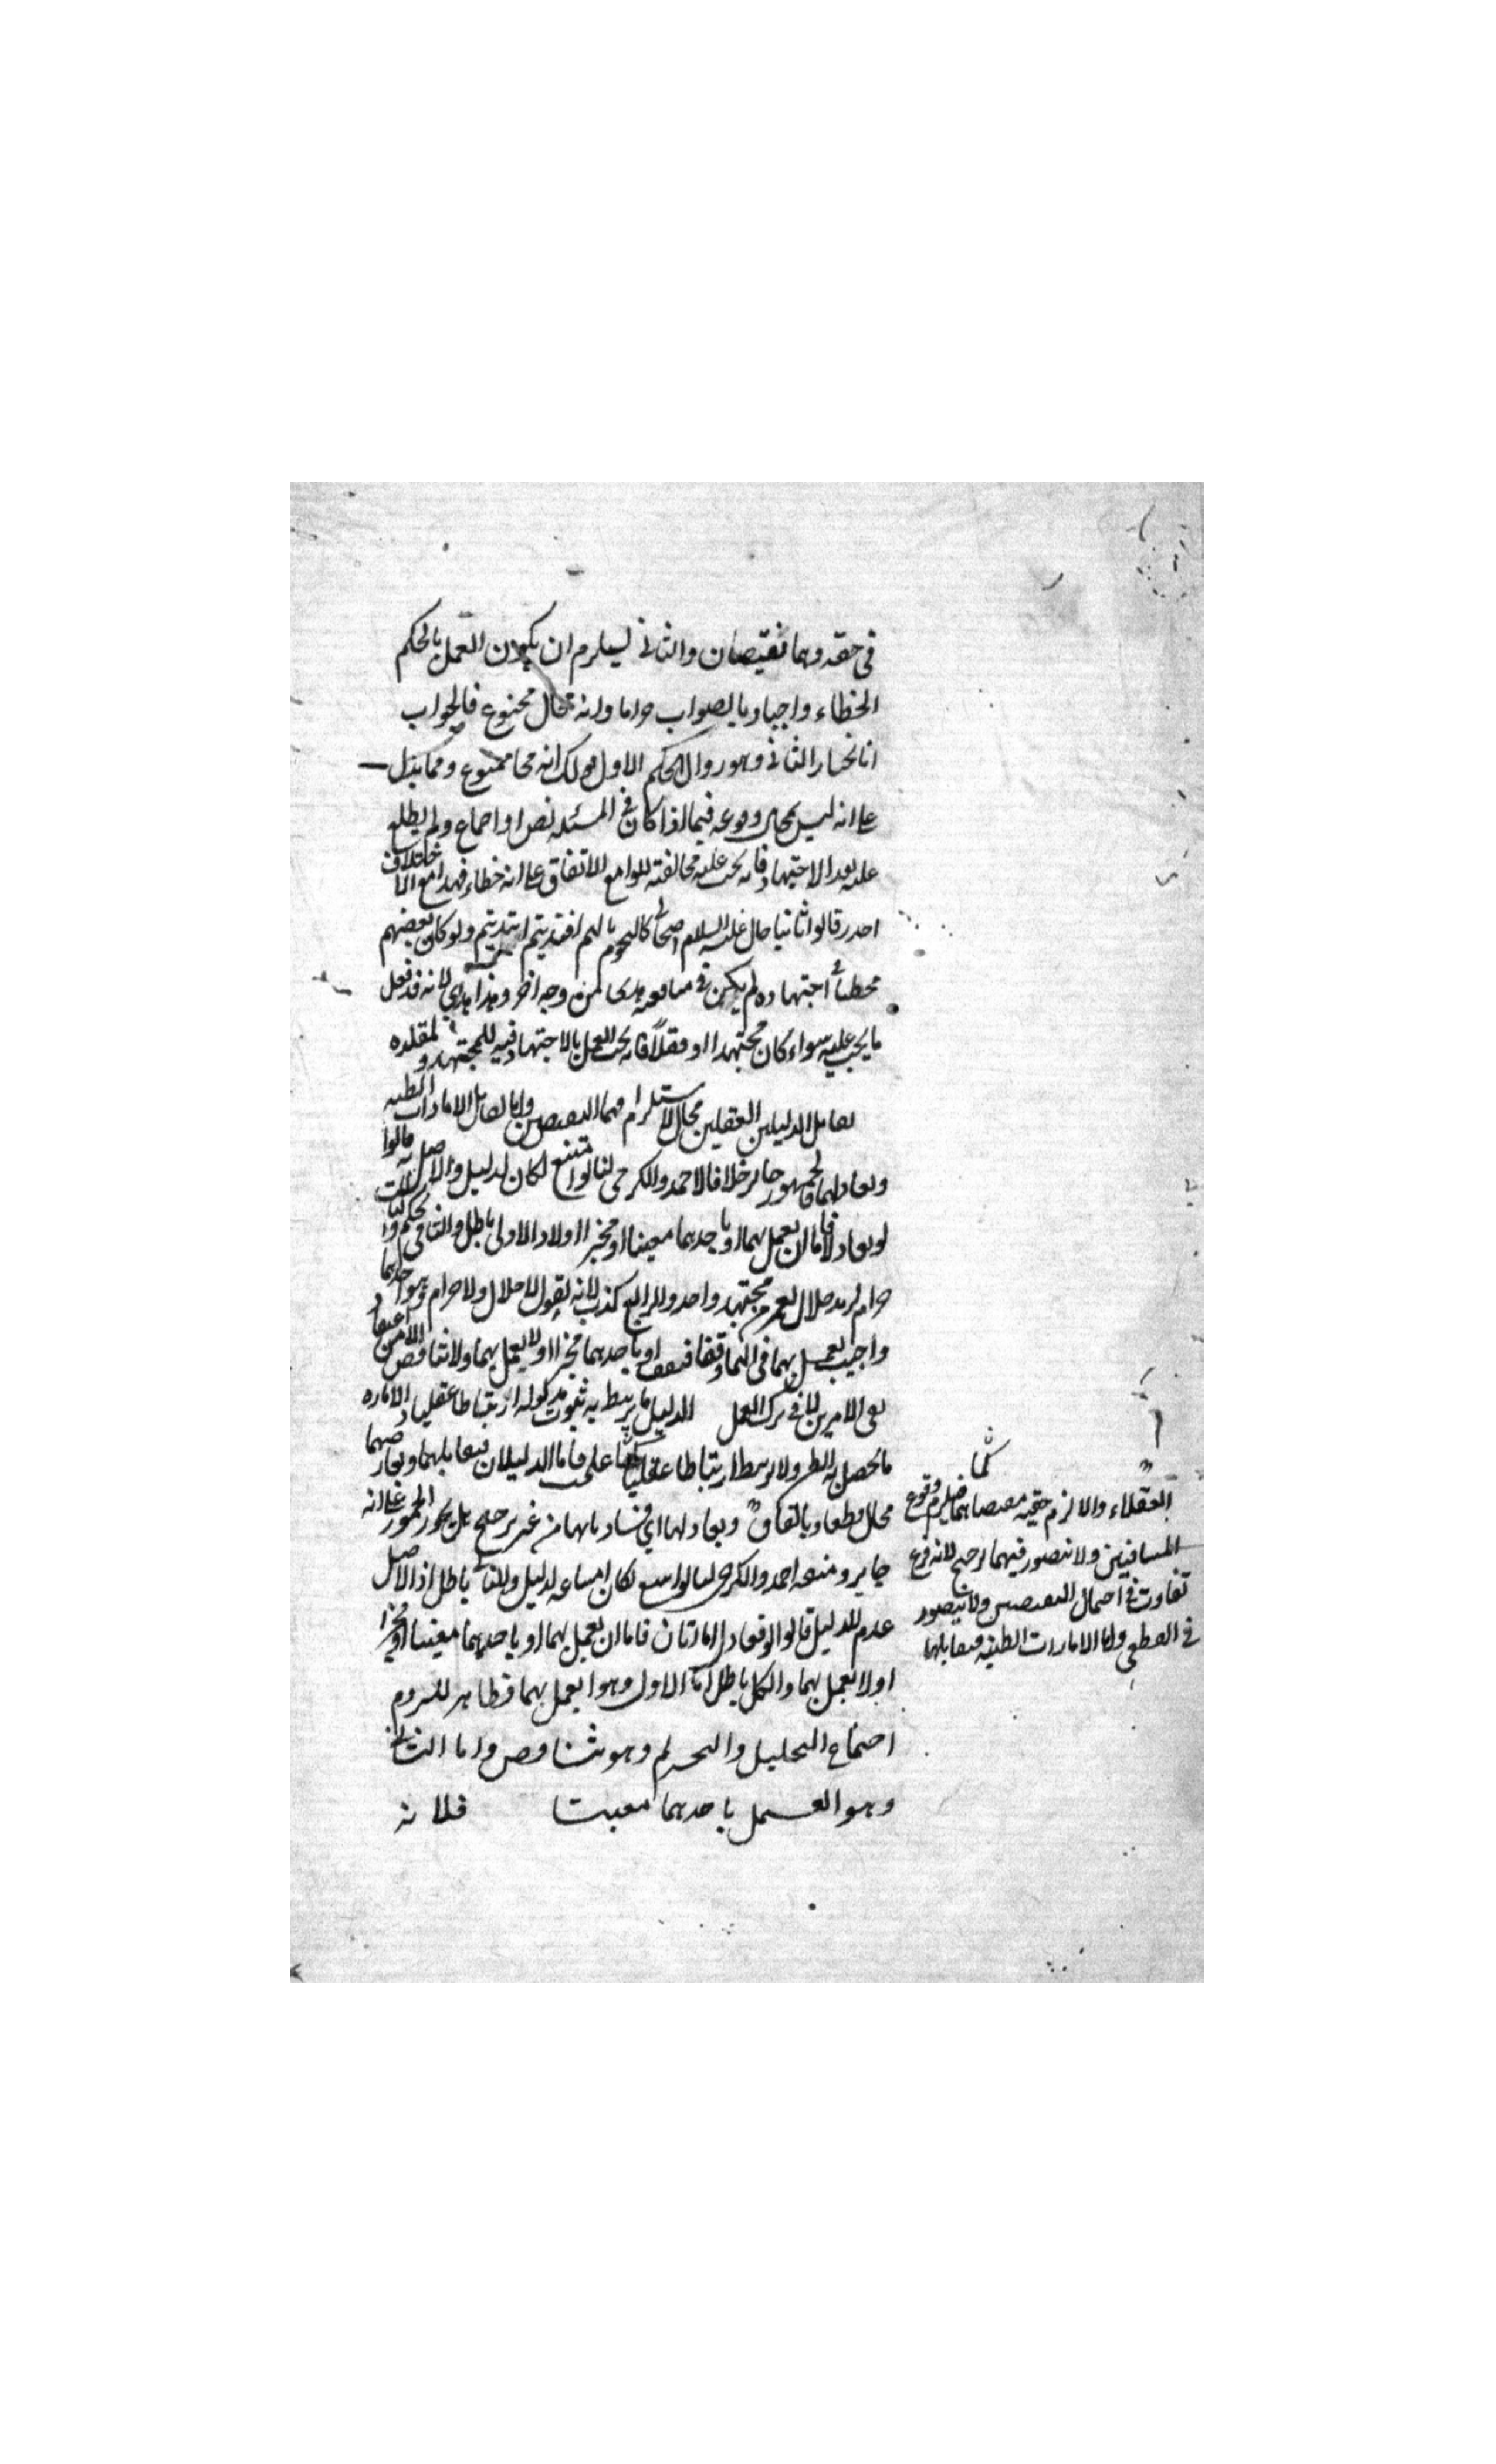 في حقه وهما نقيضان والثاني يستلزم ان يكون العمل بالحكم
الخطاء واجبا وبالصواب حراما وانه محال ممنوع فالجواب
انا نختار الثاني وهو زوال الحكم الاول قولك انه محال ممنوع ومما يدل
على انه ليس بمحال وقوعه فيما اذا كان في المسئله نص او اجماع ولم يطلع
عليه بعد الاجتهاد فانه يجب عليه مخالفته للواقع الاتفاق على انه خطاء فهذا مع الاختلاف
اجدر قالوا ثانيا قال عليه السلام اصحابي كالنجوم بايهم اقتديتم اهتديتم ولو كان بعضهم
مخطئا في اجتهاده لم يكن في متابعته هدى من وجه اخر وهذا هدى لانه قد فعل
ما يجب عليه سواء كان مجتهدا او مقلدا فانه يجب العمل بالاجتهاد فيه للمجتهد ولمقلده
تقابل الدليلين العقليين محال لاستلزامهما النقيضين واما تقابل الامارات الظنيه
وتعادلهما فالجمهور جايز خلافا لاحمد والكرخي لنا لو امتنع لكان لدليل والاصل عدمه قالوا
لو تعادلا فاما ان يعمل بهما او باحدهما معينا او مخيرا اولا والاول باطل والثاني تحكم والثالث
حرام لزيد حلال لعمرو من مجتهد واحد والرابع كذب لانه يقول لا حلال ولا حرام وهو احدهما
واجيب يعمل بهما في انهما وقفا فيقف او باحدهما مخيرا اولا يعمل بهما ولا تناقض الا من اعتقاد
نفي الامرين لا في ترك العمل الدليل ما يرتبط به ثبوت مدلوله ارتباطا عقليا والاماره
ما يحصل به الظن ولا يرتبط ارتباطا عقليا فاما الدليلان فتقابلهما وتعارضهما
محال قطعا وباتفاق وتعادلهما اي تساويهما من غير ترجيح بل يجوز الجمهور على انه
جايز ومنعه احمد والكرخي لنا لو امتنع لكان امتناعه لدليل والتالي باطل اذ الاصل
عدم الدليل قالوا لو تعادل امارتان فاما ان يعمل بهما او باحدهما معينا او مخيرا
اولا يعمل بهما والكل باطل اما الاول وهو ا يعمل بهما فظاهر للزوم
اجتماع التحليل والتحريم وهو تناقض واما الثاني
وهو العمل باحدهما معينا فلانه
العقلاء والا لزم حقيه مقتضاهما فيلزم وقوع
المتنافيين ولا يتصور فيهما ترجيح لانه فرع
تفاوت في احتمال النقيضين ولا يتصور
في القطعي واما الامارات الظنيه فتقابلها